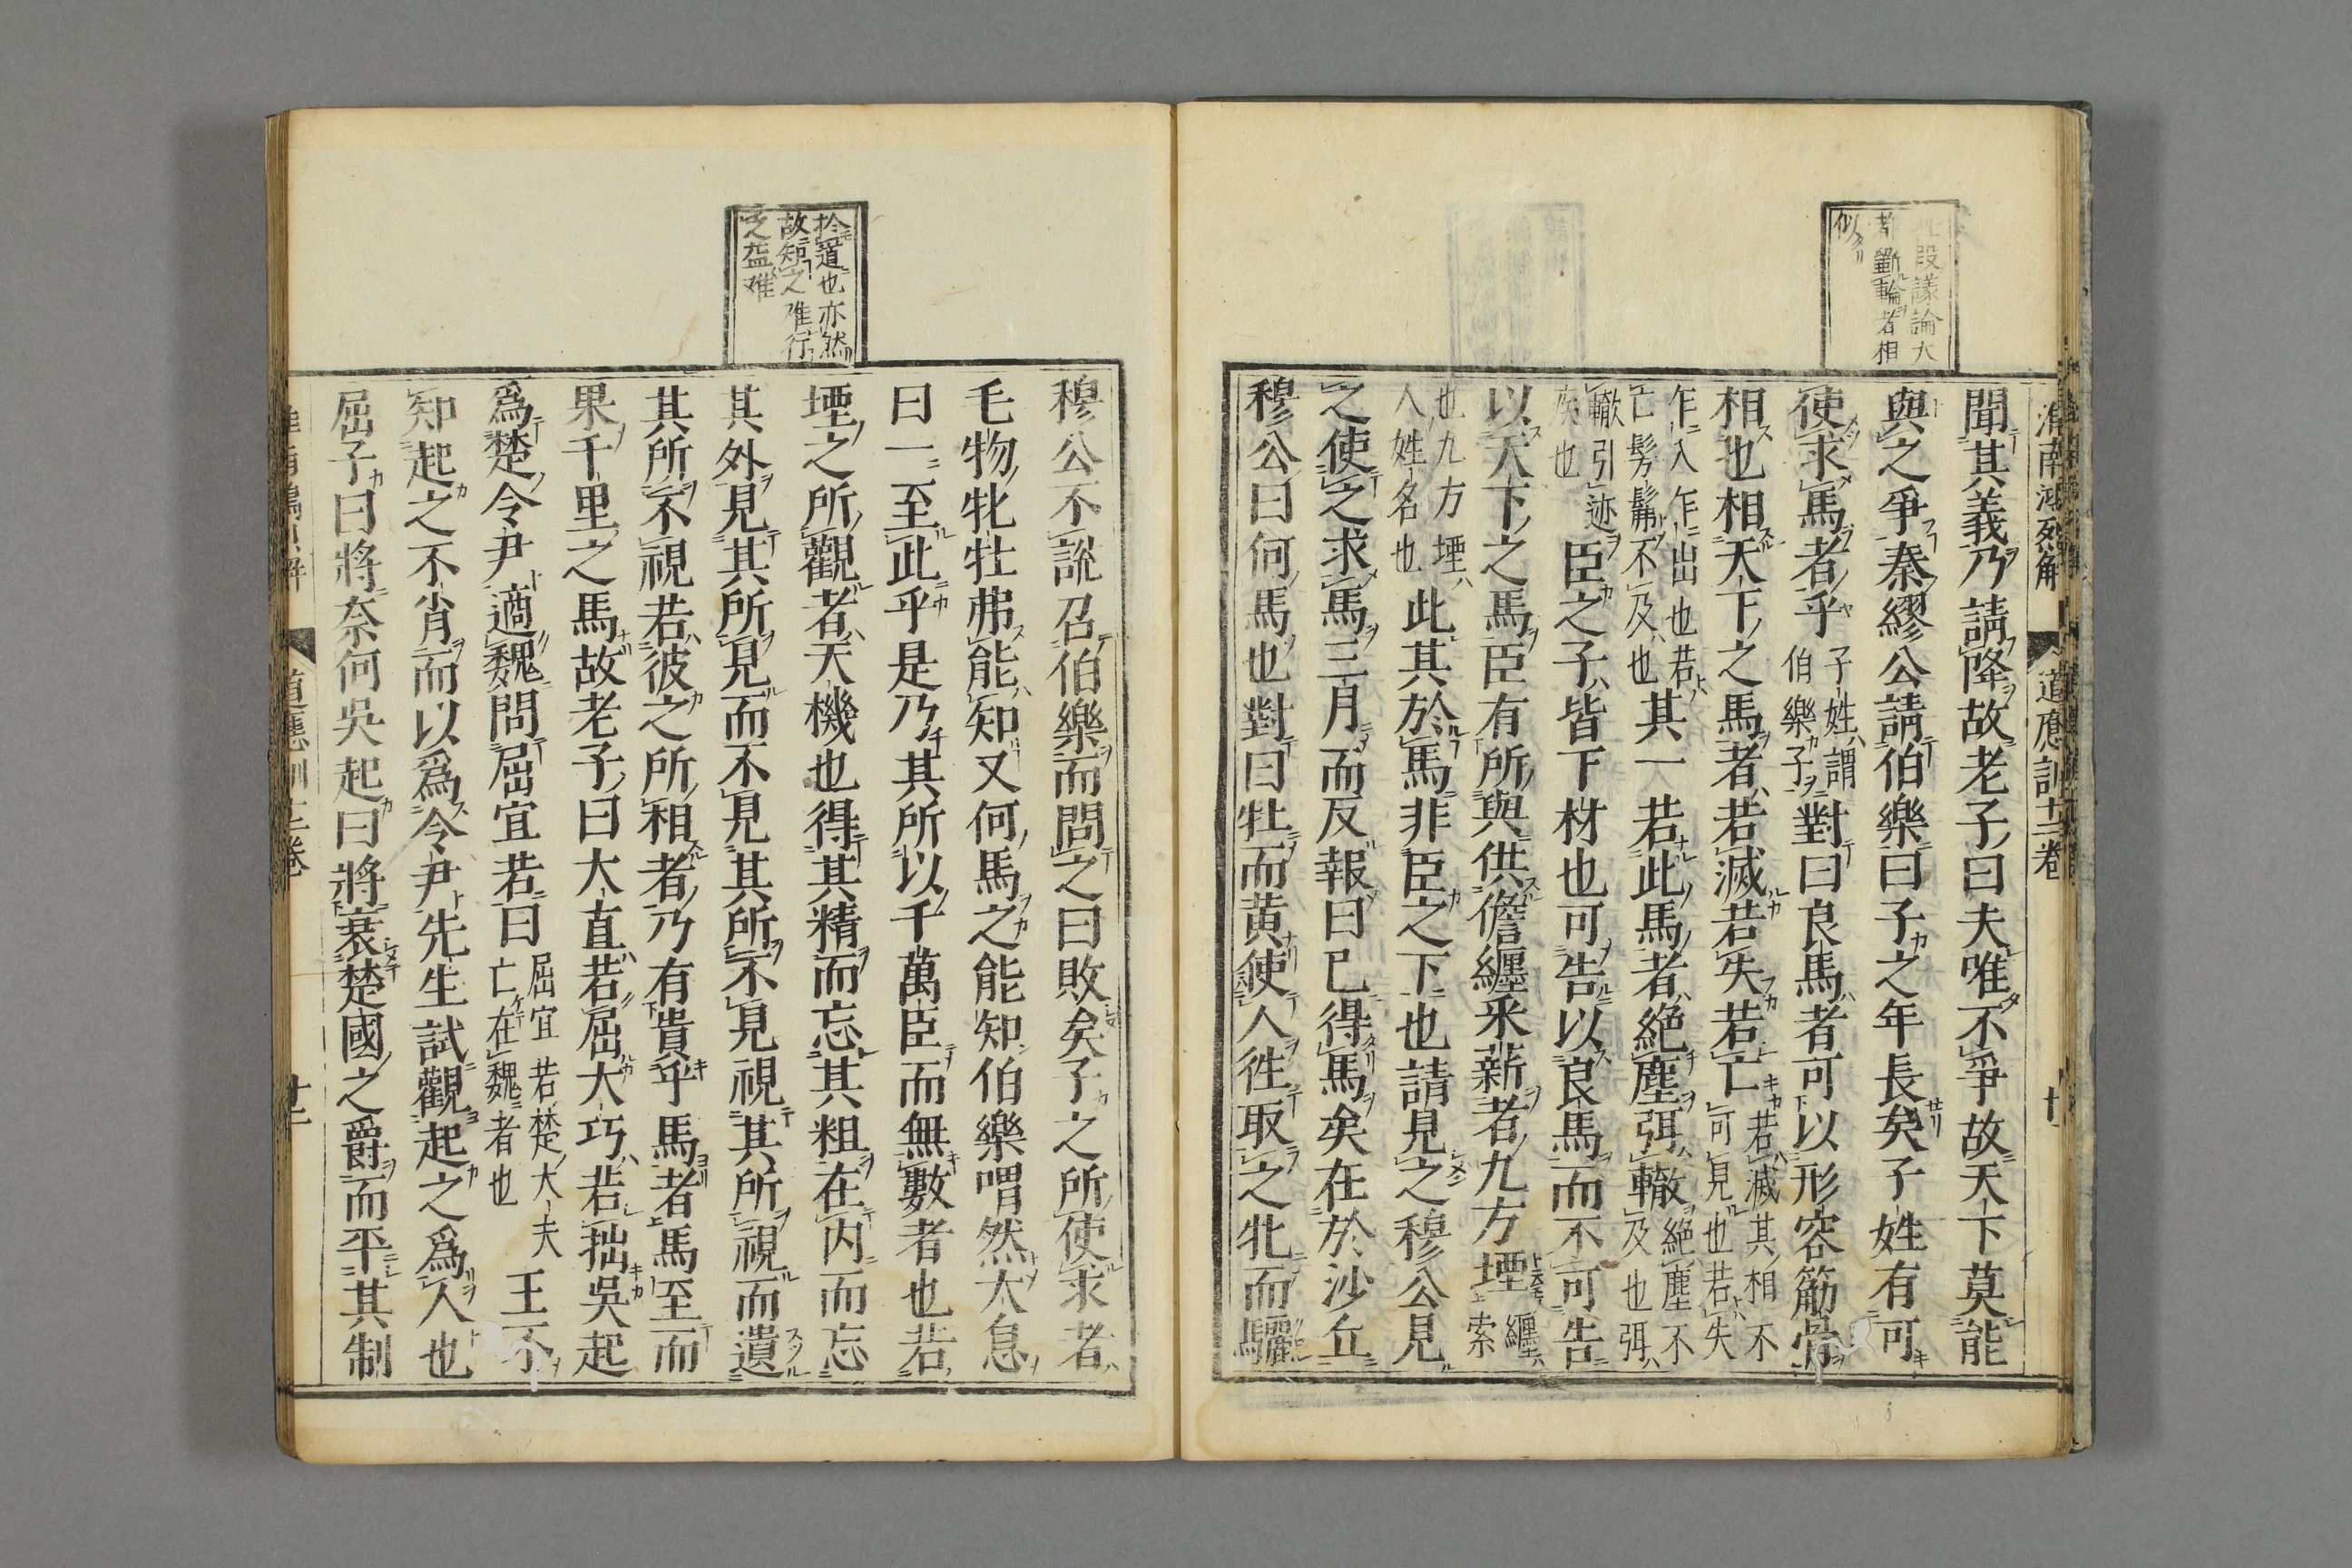 淮南鴻烈解 道應訓十二卷 十
段議論大
者斲輪者相
似
聞其義乃請降故老子曰夫唯不爭故天下莫能
與之爭秦繆公請伯樂曰子之年長矣子姓有可
使求馬者乎子姓謂伯樂子對曰良馬者可以形容筋骨
相也相天下之馬者若滅若失若亡若滅其相不可見也若失
乍入乍出也若亡髣髴不及也其一若此馬者絶塵弭轍絶塵不及也弭
轍引迹疾也臣之子皆下材也可告以良馬而不可告
以天下之馬臣有所與供儋纏釆薪者九方堙纏索
也九方堙人姓名也此其於馬非臣之下也請見之穆公見
之使之求馬三月而反報曰已得馬矣在於沙丘
穆公曰何馬也對曰牡而黄使人徃取之牝而驪
扵道也亦然
故知之难行
之益难
穆公不說召伯樂而問之曰敗矣子之所使求者
毛物牝牡弗能知又何馬之能知伯樂喟然大息
曰一至此乎是乃其所以千萬臣而無數者也若
堙之所觀者天機也得其精而忘其粗在内而忘
其外見其所見而不見其所不見視其所視而遺
其所不視若彼之所相者乃有貴乎馬者馬至而
果千里之馬故老子曰大直若屈大巧若拙吳起
爲楚令尹適魏問屈宜若曰屈宜若楚大夫亡在魏者也王不
知起之不肖而以爲令尹先生試觀起之爲人也
屈子曰將奈何吳起曰將衰楚國之爵而平其制
道應訓十二卷